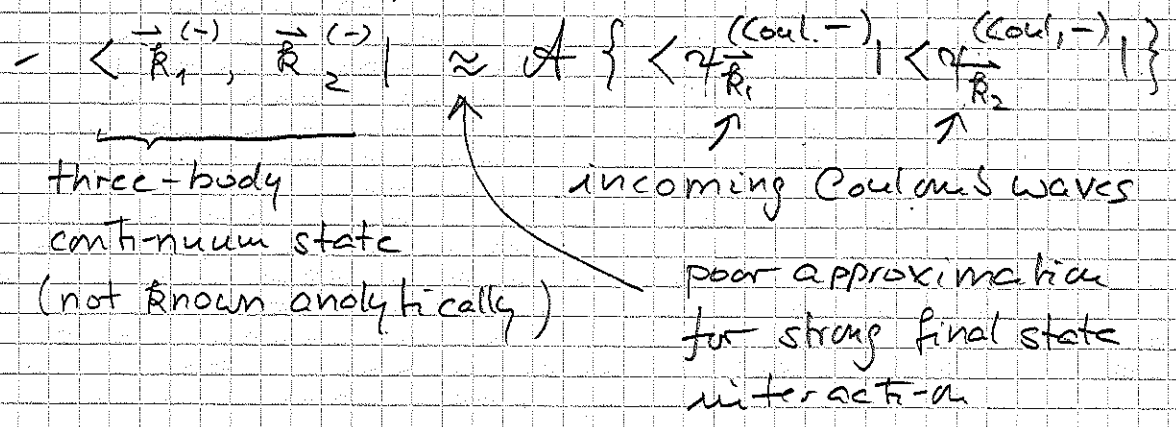 - < k⃗₁⁽⁻⁾, k⃗₂⁽⁻⁾ | ≈ A { < ψ_k⃗₁^(Coul.-) | < ψ_k⃗₂^(Coul,-) | }
three-body
continuum state
(not known analytically)
incoming Coulomb waves
poor approximation
for strong final state
interaction